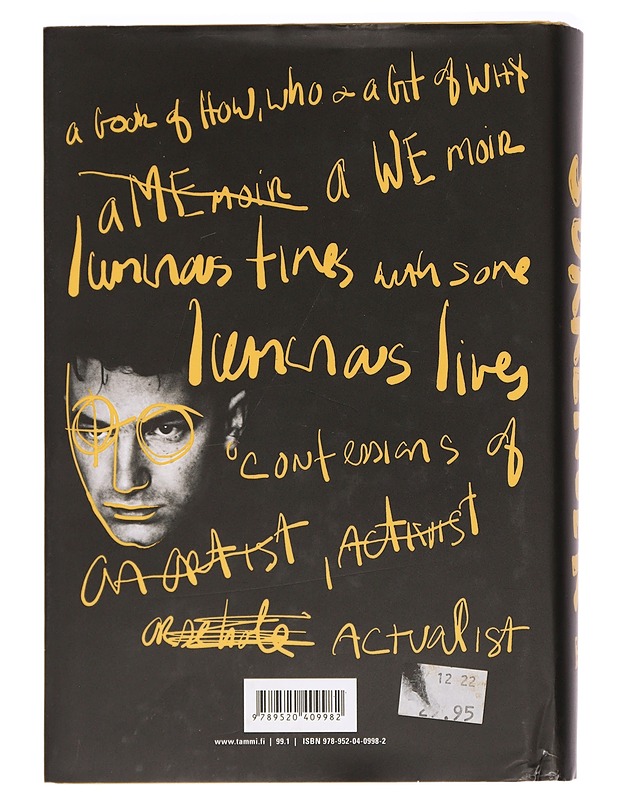 a book of How, who & a bit of WHY
a MEmoir a WE moir
luminous times with some
luminous lives
confessions of
an artist, ACTiVist
arsehole ACTUALIST
SURRENDER
12 22
.95
9 789520 409982
www.tammi.fi | 99.1 | ISBN 978-952-04-0998-2